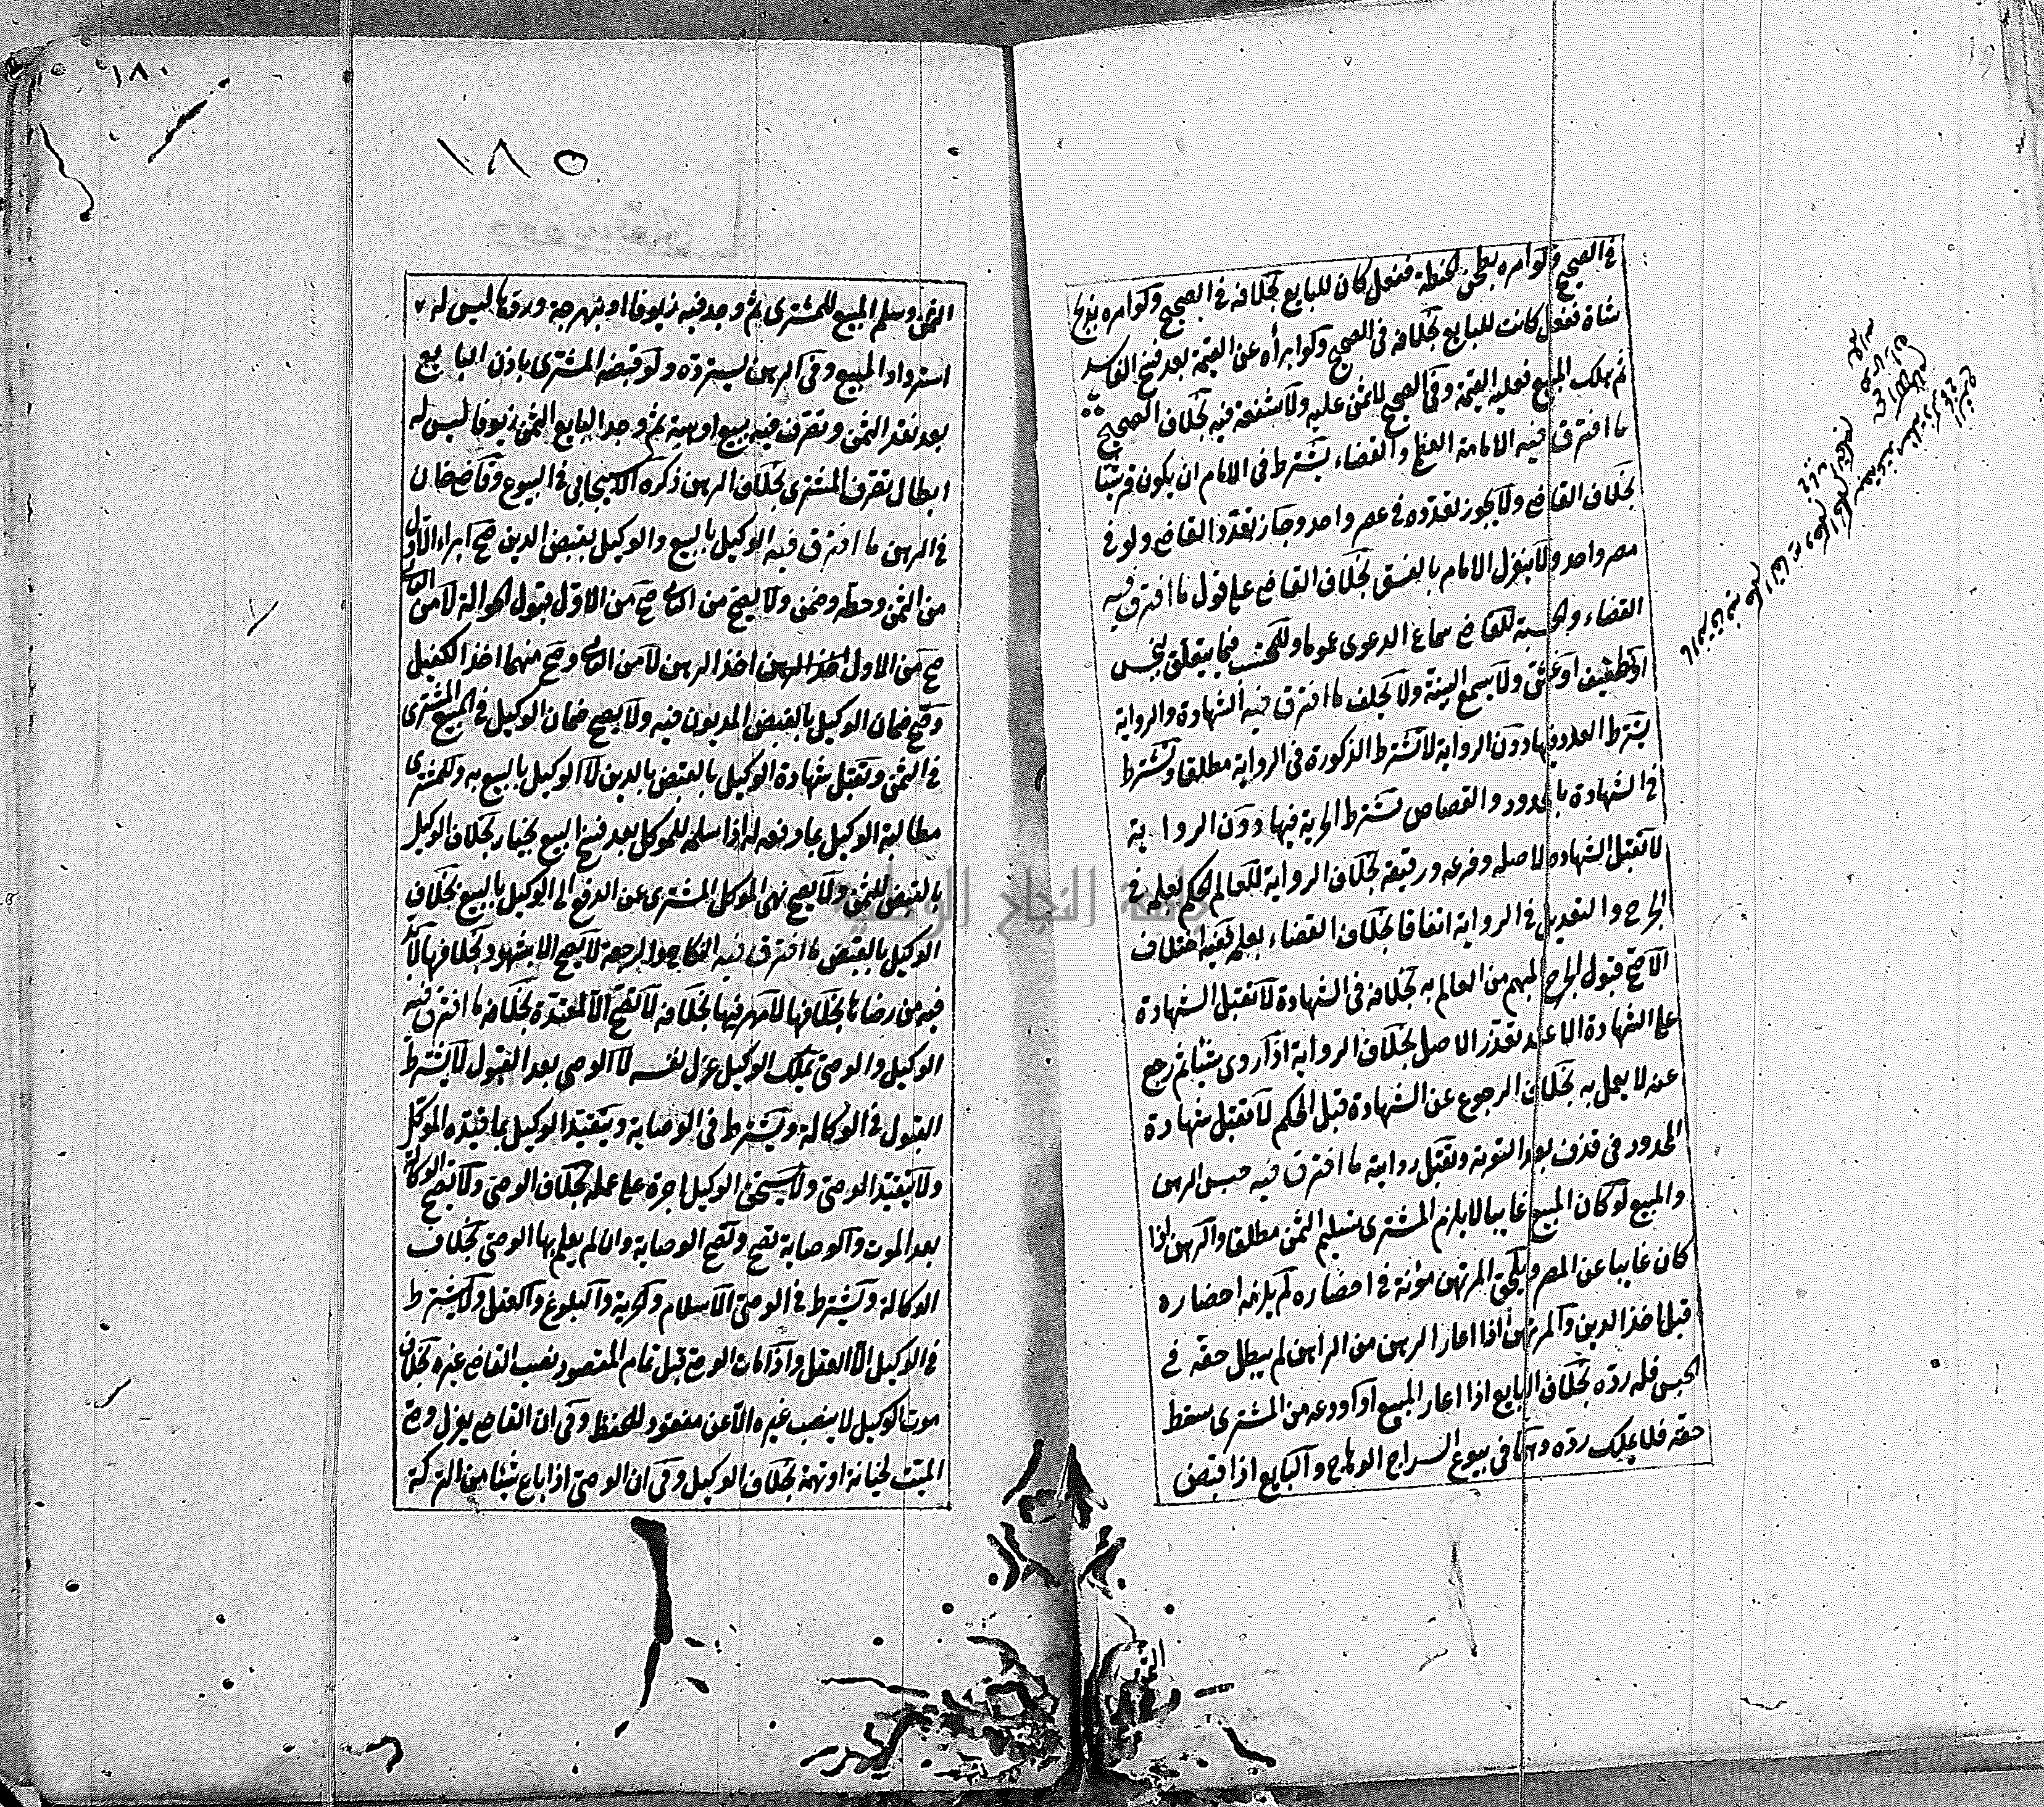 في الصحيح ولو امره بطحن الحنطة ففعل كان للبايع بخلافه في الصحيح ولو امره بذبح
شاة ففعل كانت للبايع بخلافه في الصحيح ولو ابرأه عن القيمة بعد فسخ الفاسد
ثم هلك المبيع فعليه القيمة وفي الصحيح لا ثمن عليه ولا شفعة فيه بخلاف الصحيح
ما افترق فيه الامامة العظمى والقضاء يشترط في الامام ان يكون قرشيا
بخلاف القاضي ولا يجوز تعدده في عصر واحد وجاز تعدد القاضي ولو في
مصر واحد ولا ينعزل الامام بالفسق بخلاف القاضي على قول ما افترق فيه
القضاء والحسبة للقاضي سماع الدعوى عموما وللمحتسب فيما يتعلق ببخس
او تطفيف او غش ولا يسمع البينة ولا يحلف ما افترق فيه الشهادة والرواية
يشترط العدد فيها دون الرواية لا تشترط الذكورة في الرواية مطلقا وتشترط
في الشهادة بالحدود والقصاص تشترط الحرية فيها دون الرواية
لا تقبل الشهادة لاصله وفرعه ورقيقه بخلاف الرواية للعالم الحكم بعلمه في
الجرح والتعديل في الرواية اتفاقا بخلاف القضاء بعلمه ففيه اختلاف
الاصح قبول الجرح المبهم من العالم به بخلافه في الشهادة لا تقبل الشهادة
على الشهادة الا عند تعذر الاصل بخلاف الرواية اذا روى شيئا ثم رجع
عنه لا يعمل به بخلاف الرجوع عن الشهادة قبل الحكم لا تقبل شهادة
المحدود في قذف بعد التوبة وتقبل روايته ما افترق فيه حبس الرهن
والمبيع لو كان المبيع غايبا لا يلزم المشتري تسليم الثمن مطلقا والرهن اذا
كان غايبا عن المصر ويلحق المرتهن مؤنة في احضاره لم يلزمه احضاره
قبل اخذ الدين والمرتهن اذا اعار الرهن من الراهن لم يبطل حقه في
الحبس فله رده بخلاف البايع اذا اعار المبيع او اودعه من المشتري سقط
حقه فلا يملك رده وهما في بيوع السراج الوهاج والبايع اذا قبض
الثمن
١٨٠
١٨٥
الثمن وسلم المبيع للمشتري ثم وجد فيه زيوفا او نبهرجة وردها ليس له
استرداد المبيع وفي الرهن يسترده ولو قبضه المشتري باذن البايع
بعد نقد الثمن وتصرف فيه ببيع او هبة ثم وجد البايع الثمن زيوفا ليس له
ابطال تصرف المشتري بخلاف الرهن ذكره الاسبيجابي في البيوع وقاضي خان
في الرهن ما افترق فيه الوكيل بالبيع والوكيل بقبض الدين صح ابراء الاول
من الثمن وحطه وضمن ولا يصح من الثاني صح من الاول قبول الحوالة لا من الثاني
صح من الاول اخذ الرهن لا من الثاني وصح منهما اخذ الكفيل
وصح ضمان الوكيل بالقبض المديون فيه ولا يصح ضمان الوكيل في المبيع المشتري
في الثمن وتقبل شهادة الوكيل بالقبض بالدين لا الوكيل بالبيع به وللمشتري
مطالبة الوكيل بما دفعه له اذا سلمه للموكل بعد فسخ البيع بخيار بخلاف الوكيل
بالقبض للثمن ولا يصح نهي الموكل المشتري عن الدفع الى الوكيل بالبيع بخلاف
الوكيل بالقبض ما افترق فيه النكاح والرجعة لا يصح الا بشهود بخلافها لا بد
فيه من رضاها بخلافها لا مهر فيها بخلافه لا تصح الا لمعتدة بخلافه ما افترق فيه
الوكيل والوصي يملك الوكيل عزل نفسه لا الوصي بعد القبول لا يشترط
القبول في الوكالة ويشترط في الوصاية ويتقيد الوكيل بما قيده الموكل
ولا يتقيد الوصي ولا يستحق الوكيل اجرة على عمله بخلاف الوصي ولا تصح الوكالة
بعد الموت والوصاية تصح وتصح الوصاية وان لم يعلم بها الوصي بخلاف
الوكالة ويشترط في الوصي الاسلام والحرية والبلوغ والعقل ولا يشترط
في الوكيل الا العقل واذا مات الوصي قبل تمام المقصود نصب القاضي غيره بخلاف
موت الوكيل لا ينصب غيره الا عن مفقود للحفظ وفي ان القاضي يعزل وصي
الميت لخيانة او تهمة بخلاف الوكيل وفي ان الوصي اذا باع شيئا من التركة
جامعة النجاح الوطنية